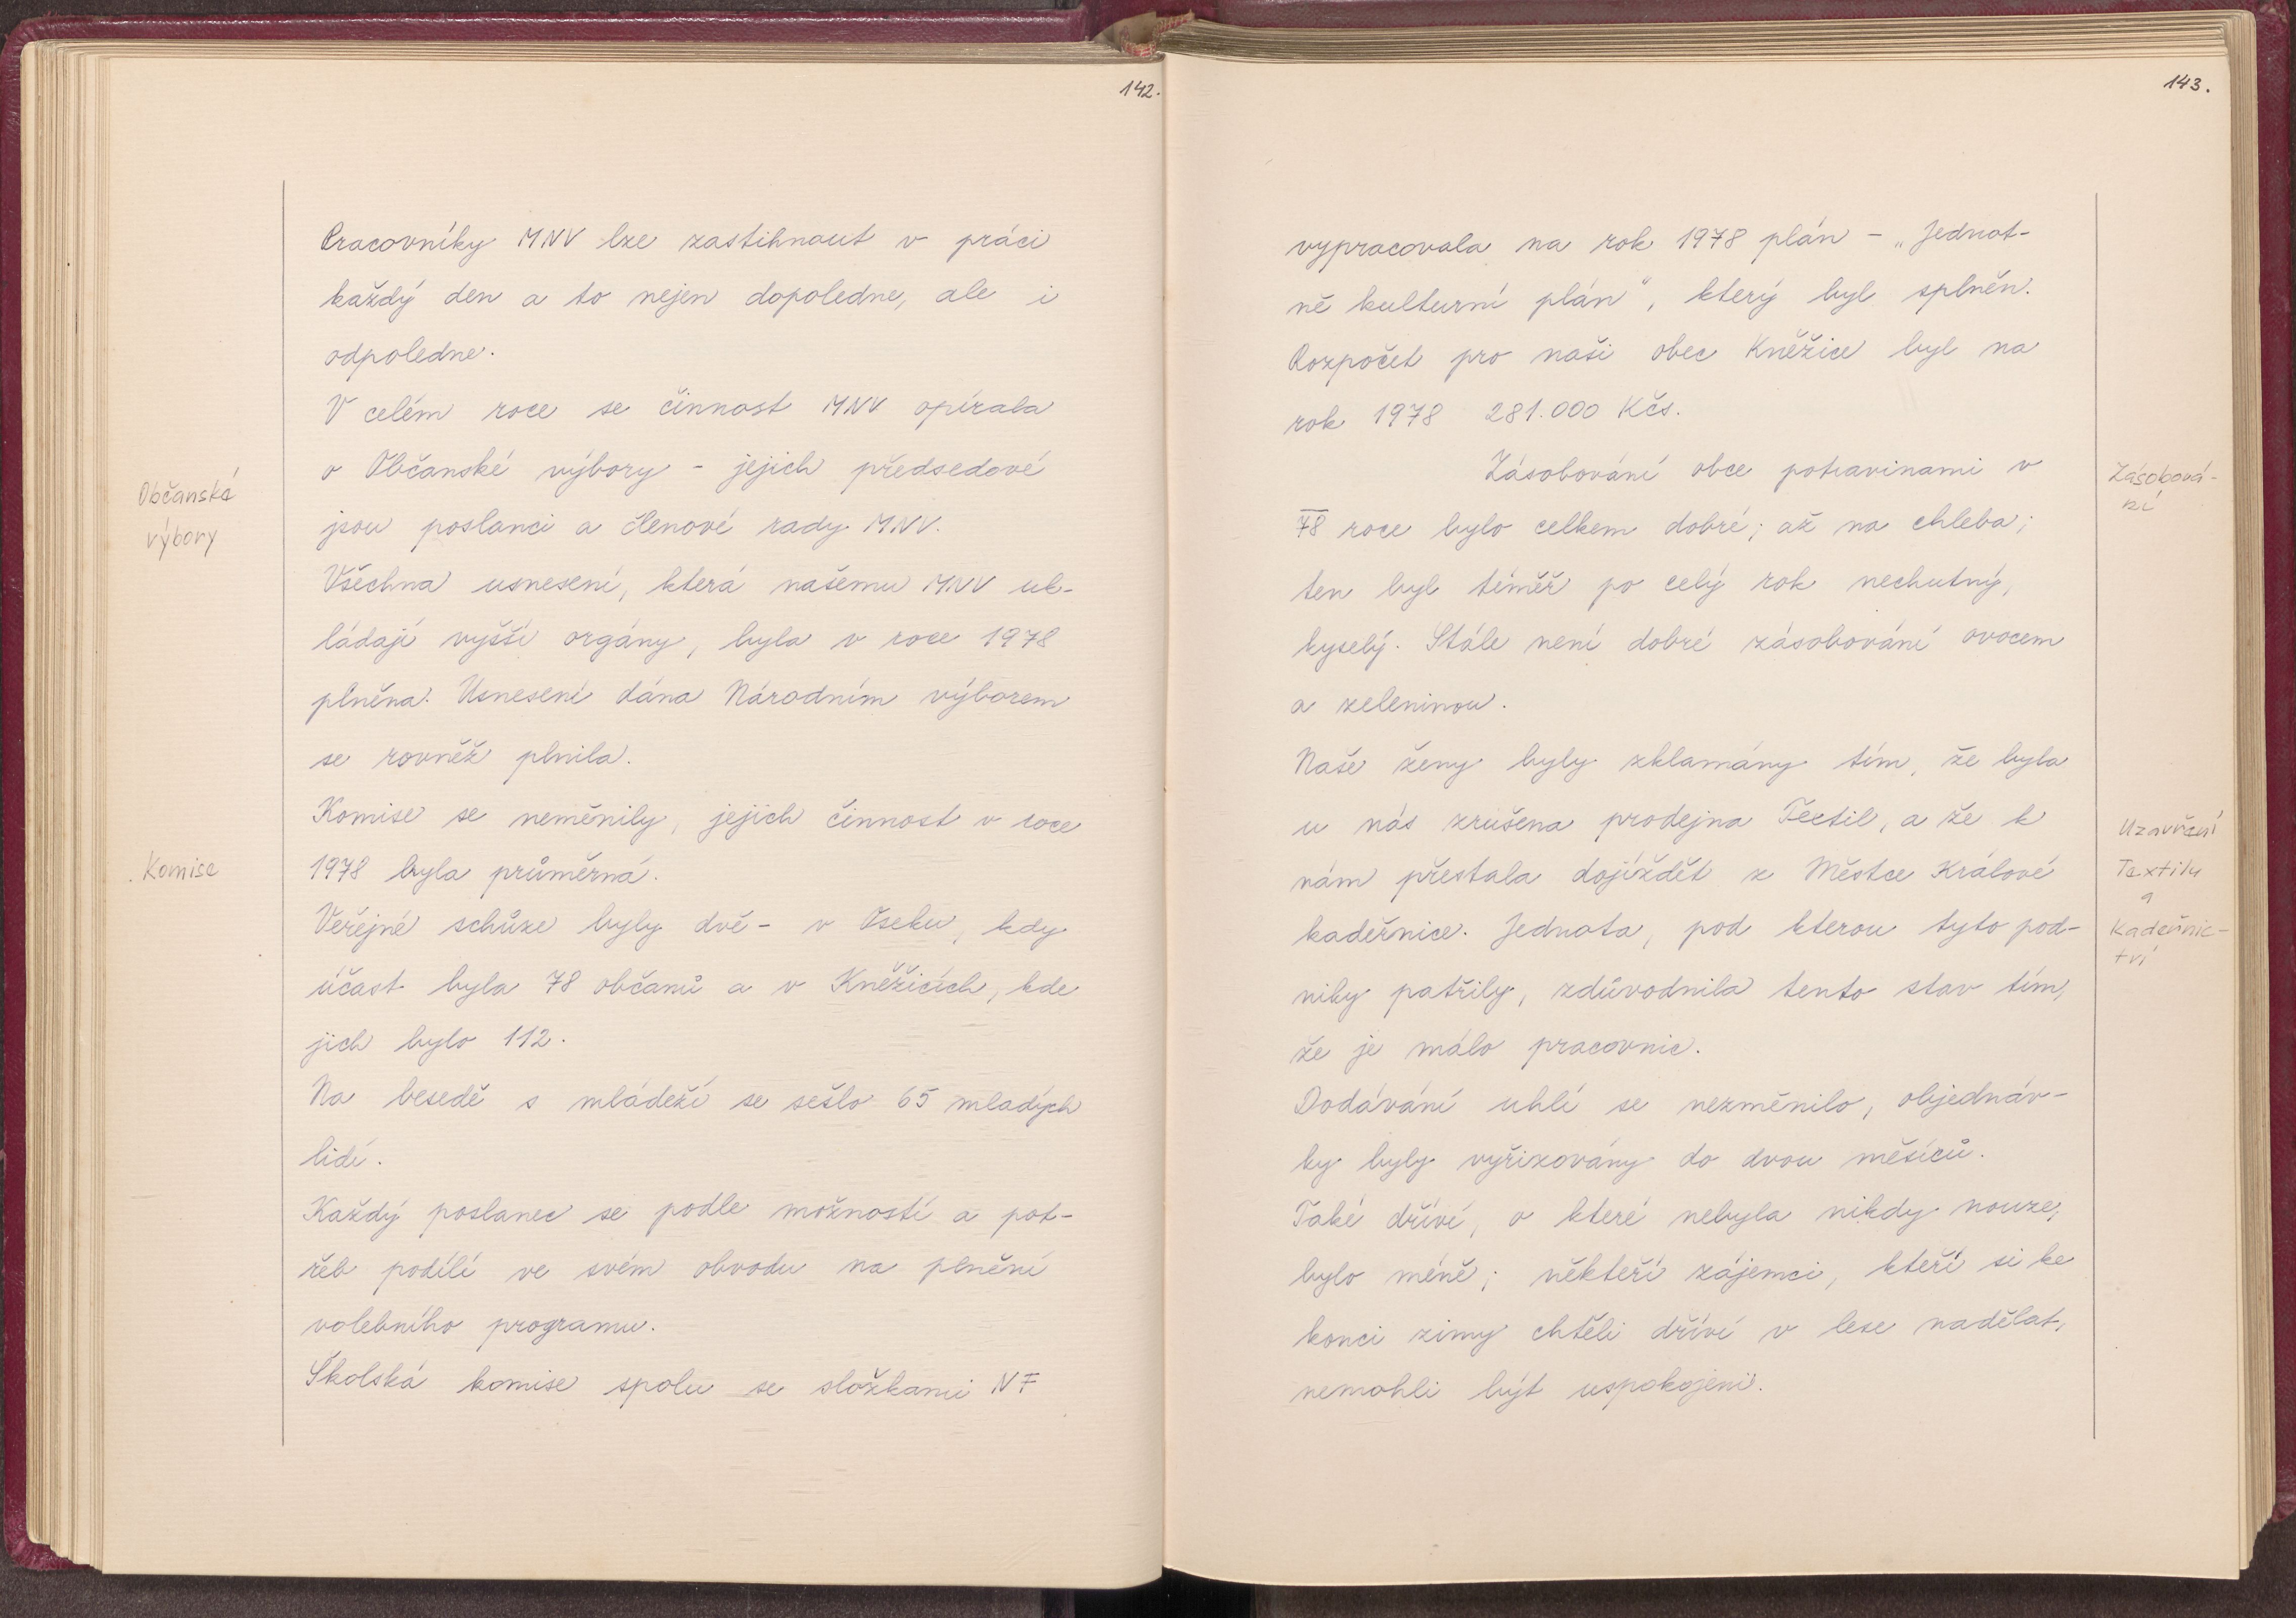 142.
Pracovníky MNV lze zastihnout v práci
každý den a to nejen dopoledne, ale i
odpoledne.
V celém roce se činnost MNV opírala
o Občanské výbory - jejich předsedové
jsou poslanci a členové rady MNV.
Občanské
výbory
Všechna usnesení, která našemu MNV uk-
ládají vyšší orgány, byla v roce 1978
plněna. Usnesení dána Národním výborem
se rovněž plnila.
Komise se neměnily, jejich činnost v roce
1978 byla průměrná.
Komise
Veřejné schůze byly dvě - v Oseku, kdy
účast byla 78 občanů a v Kněžicích, kde
jich bylo 112.
Na besedě s mládeží se sešlo 65 mladých
lidí.
Každý poslanec se podle možností a pot-
řeb podílí ve svém obvodu na plnění
volebního programu.
Školská komise spolu se složkami NF
143.
vypracovala na rok 1978 plán - „Jednot-
ně kulturní plán", který byl splněn.
Rozpočet pro naši obec Kněžice byl na
rok 1978 281.000 Kčs.
Zásobování obce potravinami v
78 roce bylo celkem dobré; až na chleba;
Zásobová-
ní
ten byl téměř po celý rok nechutný,
kyselý. Stále není dobré zásobování ovocem
a zeleninou.
Naše ženy byly zklamány tím, že byla
u nás zrušena prodejna Textil, a že k
nám přestala dojíždět z Městce Králové
kadeřnice. Jednota, pod kterou tyto pod-
niky patřily, zdůvodnila tento stav tím,
že je málo pracovnic.
Uzavření
Textilu
a
Kadeřnic-
tví
Dodávání uhlí se nezměnilo, objednáv-
ky byly vyřizovány do dvou měsíců.
Také dříví, o které nebyla nikdy nouze,
bylo méně; někteří zájemci, kteří si ke
konci zimy chtěli dříví v lese nadělat,
nemohli být uspokojeni.